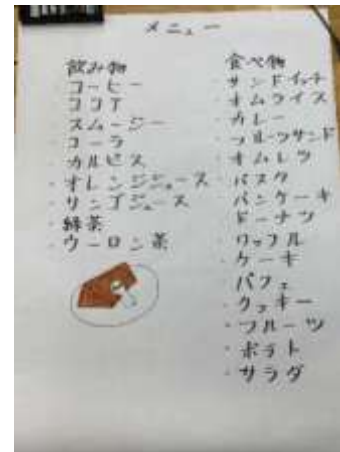 メニュー
飲み物
・コーヒー
・ココア
・スムージー
・コーラ
・カルピス
・オレンジジュース
・リンゴジュース
・緑茶
・ウーロン茶
食べ物
・サンドイッチ
・オムライス
・カレー
・フルーツサンド
・オムレツ
・パスタ
・パンケーキ
・ドーナツ
・ワッフル
・ケーキ
・パフェ
・クッキー
・フルーツ
・ポテト
・サラダ